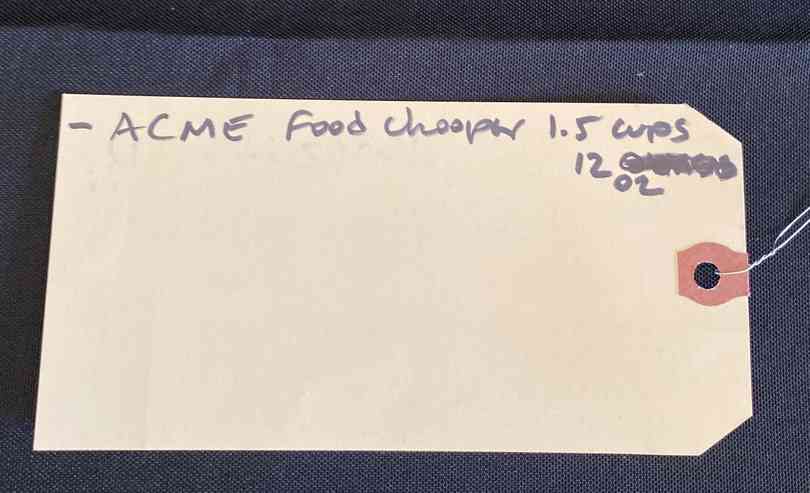 - ACME Food Chooper 1.5 cups
12
oz